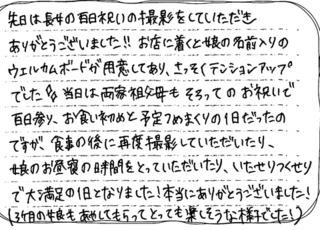 先日は長女の百日祝いの撮影をしていただき
ありがとうございました!! お店に着くと娘の名前入りの
ウェルカムボードが用意してあり、さっそくテンションアップ
でした♪ 当日は両家祖父母もそろってのお祝いで
百日参り、お食い初めと予定つめまくりの1日だったの
ですが、食事の後に再度撮影していただいたり、
娘のお昼寝の時間をとっていただいたり、いたせりつくせり
で大満足の1日となりました!本当にありがとうございました!
(3ヶ月の娘もあやしてもらってとっても楽しそうな様子でした!)